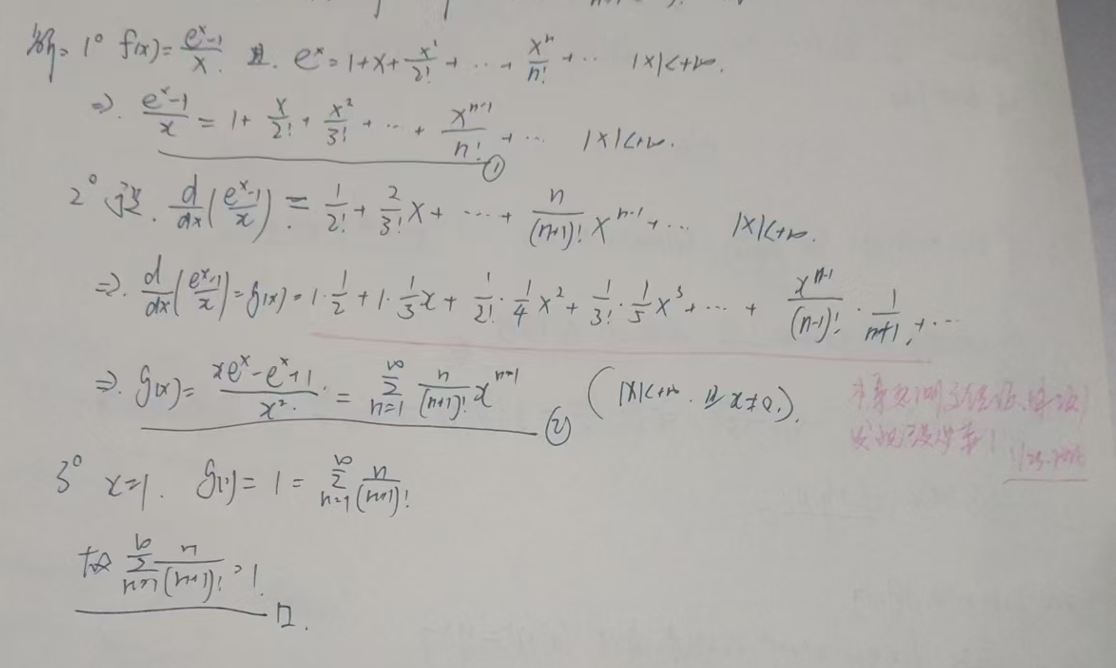 解: 1° f(x) = \frac{e^x-1}{x}. 且. e^x = 1+x+\frac{x^2}{2!}+…+\frac{x^n}{n!}+… |x|<+∞.
⇒. \frac{e^x-1}{x} = 1+\frac{x}{2!}+\frac{x^2}{3!}+…+\frac{x^{n-1}}{n!}+… |x|<+∞. ①
2° . \frac{d}{dx}(\frac{e^x-1}{x}) = \frac{1}{2!}+\frac{2}{3!}x+…+\frac{n}{(n+1)!}x^{n-1}+… |x|<+∞.
⇒. \frac{d}{dx}(\frac{e^x-1}{x}) = g(x) = 1·\frac{1}{2}+1·\frac{1}{3}x+\frac{1}{2!}·\frac{1}{4}x^2+\frac{1}{3!}·\frac{1}{5}x^3+…+\frac{x^{n-1}}{(n-1)!}·\frac{1}{n+1}+…
⇒. g(x) = \frac{xe^x-e^x+1}{x^2} = \sum_{n=1}^{∞}\frac{n}{(n+1)!}x^{n-1} (|x|<+∞. 且 x≠0.). ②
3° x=1. g(1) = 1 = \sum_{n=1}^{∞}\frac{n}{(n+1)!}
故 \sum_{n=1}^{∞}\frac{n}{(n+1)!} = 1. □.